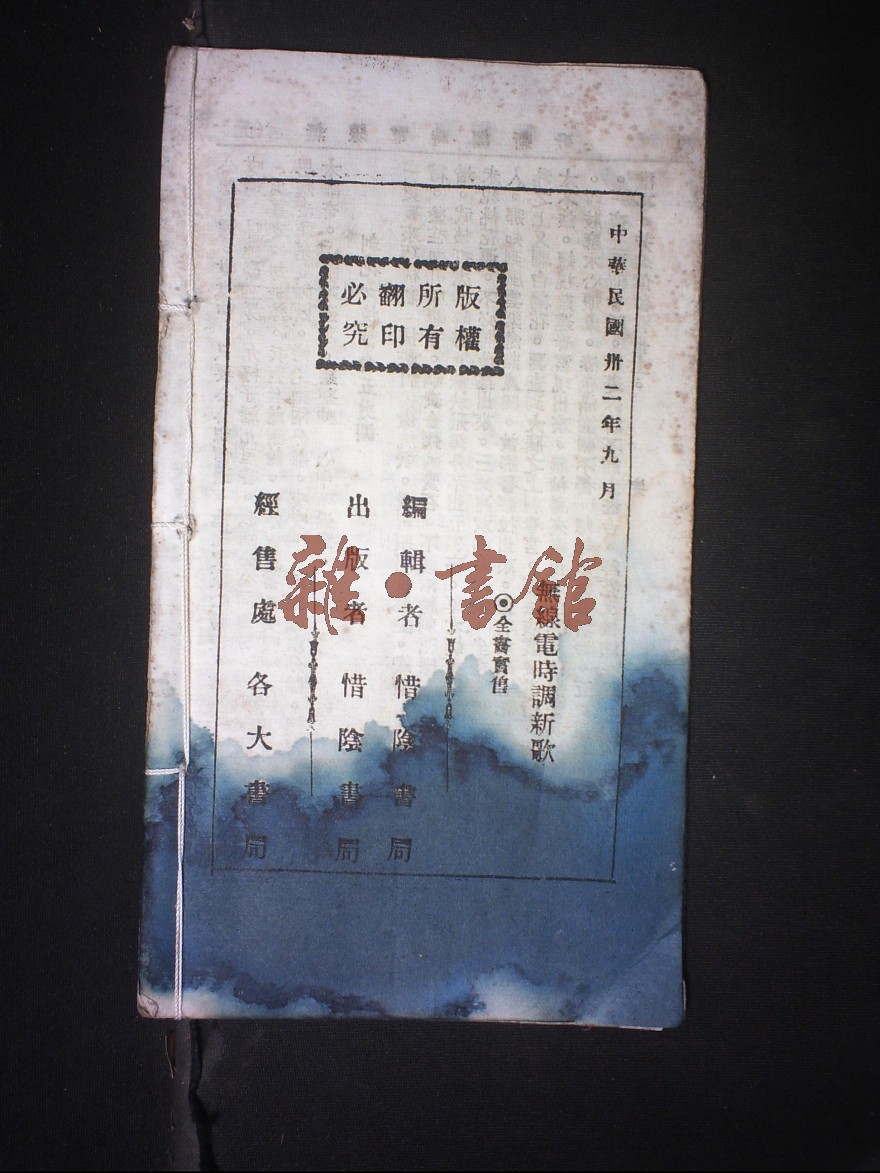 中華民國卅二年九月
無線電時調新歌
全書實售
版權
所有
翻印
必究
編輯者惜陰書局
出版者惜陰書局
經售處各大書局
雜·書館